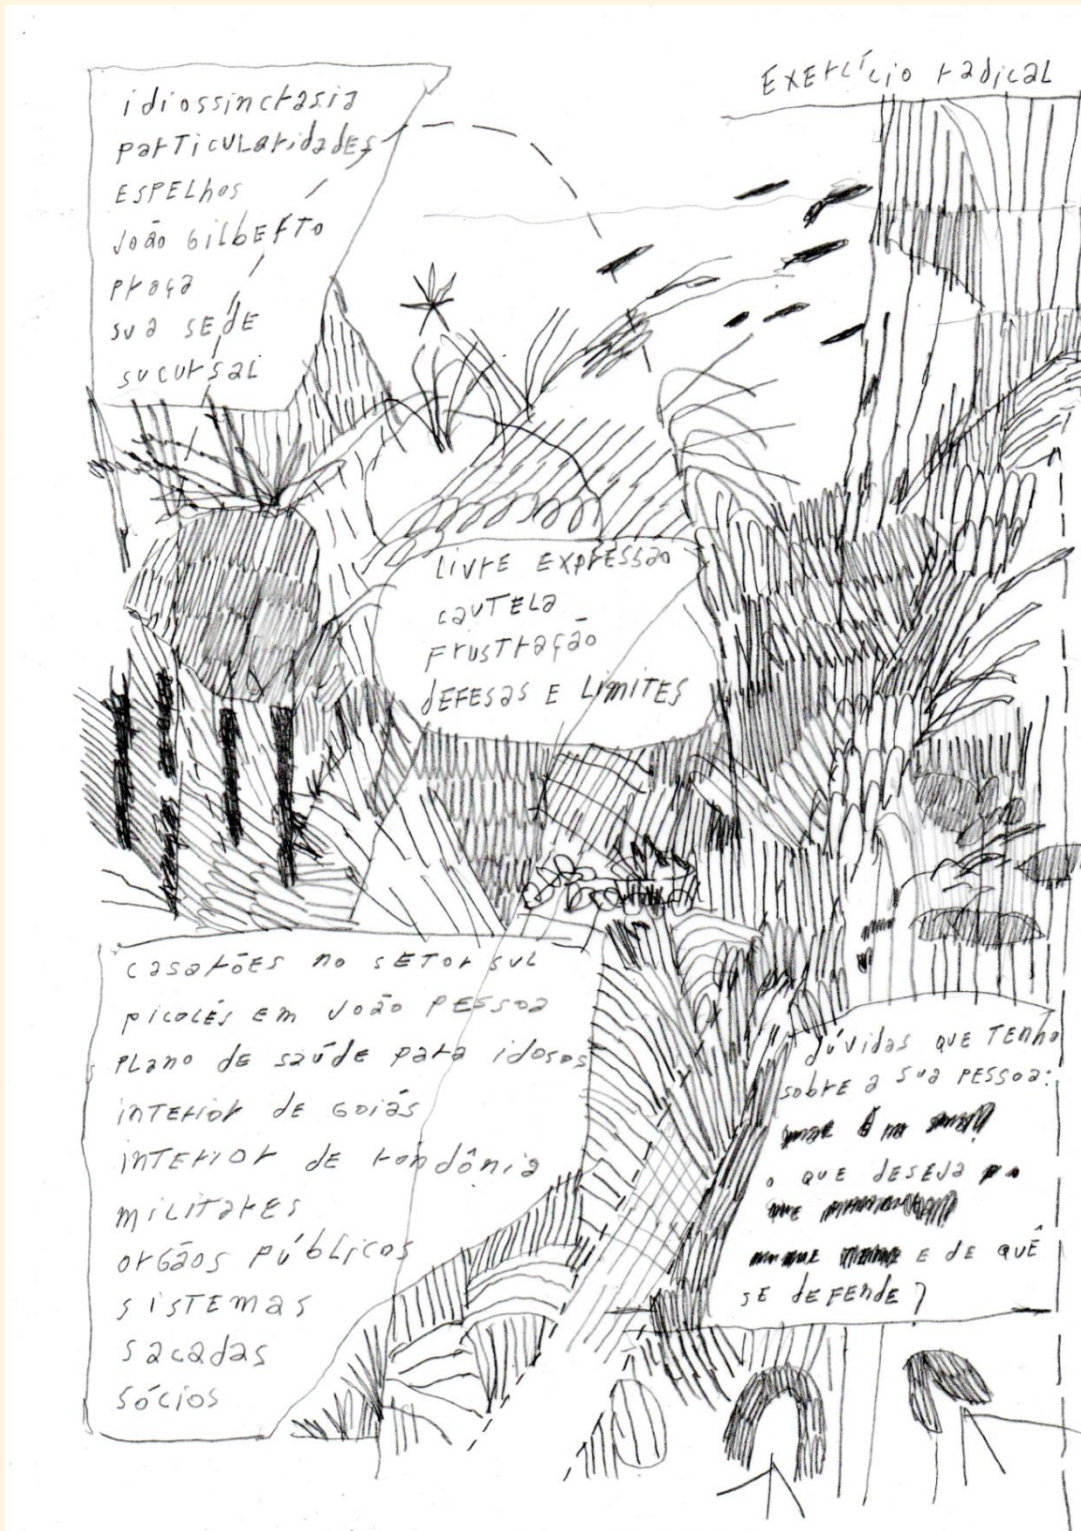 Exercício radical
idiossincrasia
particularidades
espelhos
João Gilberto
praça
sua sede
sucursal
livre expressão
cautela
frustração
defesas e limites
casarões no setor sul
picolés em João Pessoa
plano de saúde para idosos
interior de Goiás
interior de Rondônia
militares
orgãos públicos
sistemas
sacadas
sócios
dúvidas que tenho
sobre a sua pessoa:
o que deseja
e de quê
se defende?